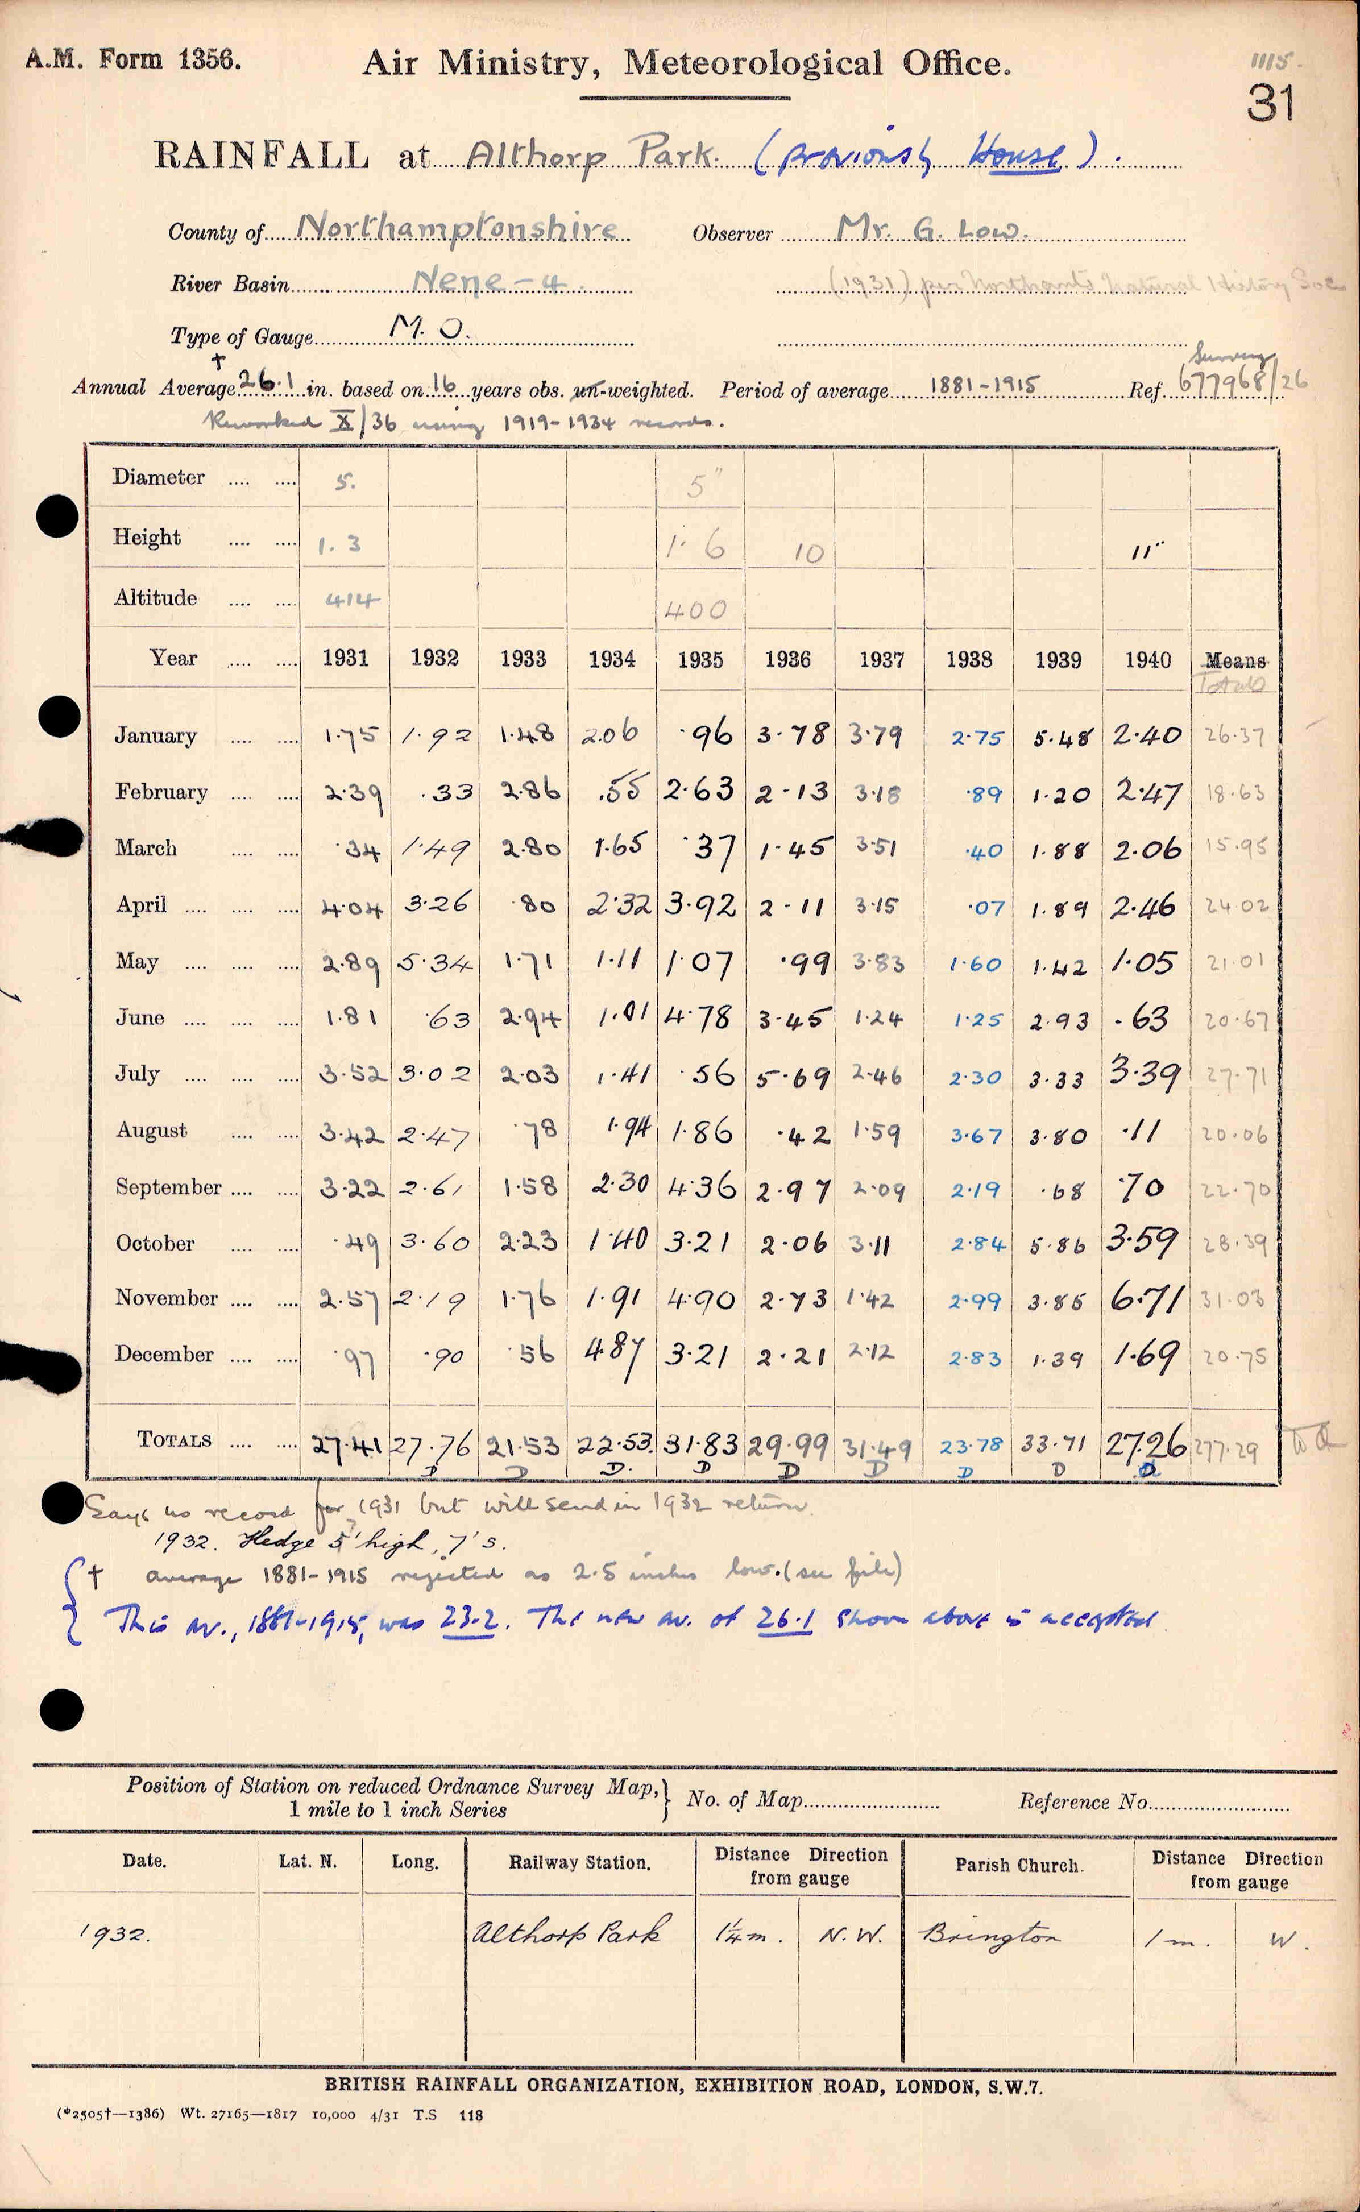 A.M. Form 1356. Air Ministry, Meteorological Office. 1115.
31
RAINFALL at Althorp Park. (previously House).
County of Northamptonshire Observer Mr. G. Low.
River Basin Nene - 4. (1931) per Northants Natural History Soc
Type of Gauge M.O.
Survey
Annual Average † 26.1 in. based on 16 years obs. un-weighted. Period of average 1881-1915 Ref. 677968/26
Reworked X/36 using 1919-1934 records.
Diameter 5. 5"
Height 1.3 1.6 10 11"
Altitude 414 400
Year 1931 1932 1933 1934 1935 1936 1937 1938 1939 1940 Means
Totals
January 1.75 1.92 1.48 2.06 .96 3.78 3.79 2.75 5.48 2.40 26.37
February 2.39 .33 2.86 .55 2.63 2.13 3.18 .89 1.20 2.47 18.63
March .34 1.49 2.80 1.65 .37 1.45 3.51 .40 1.88 2.06 15.95
April 4.04 3.26 .80 2.32 3.92 2.11 3.15 .07 1.89 2.46 24.02
May 2.89 5.34 1.71 1.11 1.07 .99 3.83 1.60 1.42 1.05 21.01
June 1.81 .63 2.94 1.01 4.78 3.45 1.24 1.25 2.93 .63 20.67
July 3.52 3.02 2.03 1.41 .56 5.69 2.46 2.30 3.33 3.39 27.71
August 3.42 2.47 .78 1.94 1.86 .42 1.59 3.67 3.80 .11 20.06
September 3.22 2.61 1.58 2.30 4.36 2.97 2.09 2.19 .68 .70 22.70
October .49 3.60 2.23 1.40 3.21 2.06 3.11 2.84 5.86 3.59 28.39
November 2.57 2.19 1.76 1.91 4.90 2.73 1.42 2.99 3.85 6.71 31.03
December .97 .90 .56 4.87 3.21 2.21 2.12 2.83 1.39 1.69 20.75
TOTALS 27.41 27.76 21.53 22.53. 31.83 29.99 31.49 23.78 33.71 27.26 277.29
D D D. D D D D D D
Says no record for 1931 but will send in 1932 return
1932. Hedge 5' high, 7' s.
† average 1881-1915 rejected as 2.5 inches low. (see file)
This av., 1881-1915, was 23.2. The new av. of 26.1 shown above is accepted
Position of Station on reduced Ordnance Survey Map,} No. of Map Reference No.
1 mile to 1 inch Series
Date. Lat. N. Long. Railway Station. Distance Direction from gauge Parish Church. Distance Direction from gauge
1932. Althorp Park 1¼ m. N.W. Brington 1 m. W.
BRITISH RAINFALL ORGANIZATION, EXHIBITION ROAD, LONDON, S.W.7.
(*2505†—1386) Wt. 27165—1817 10,000 4/31 T.S 118